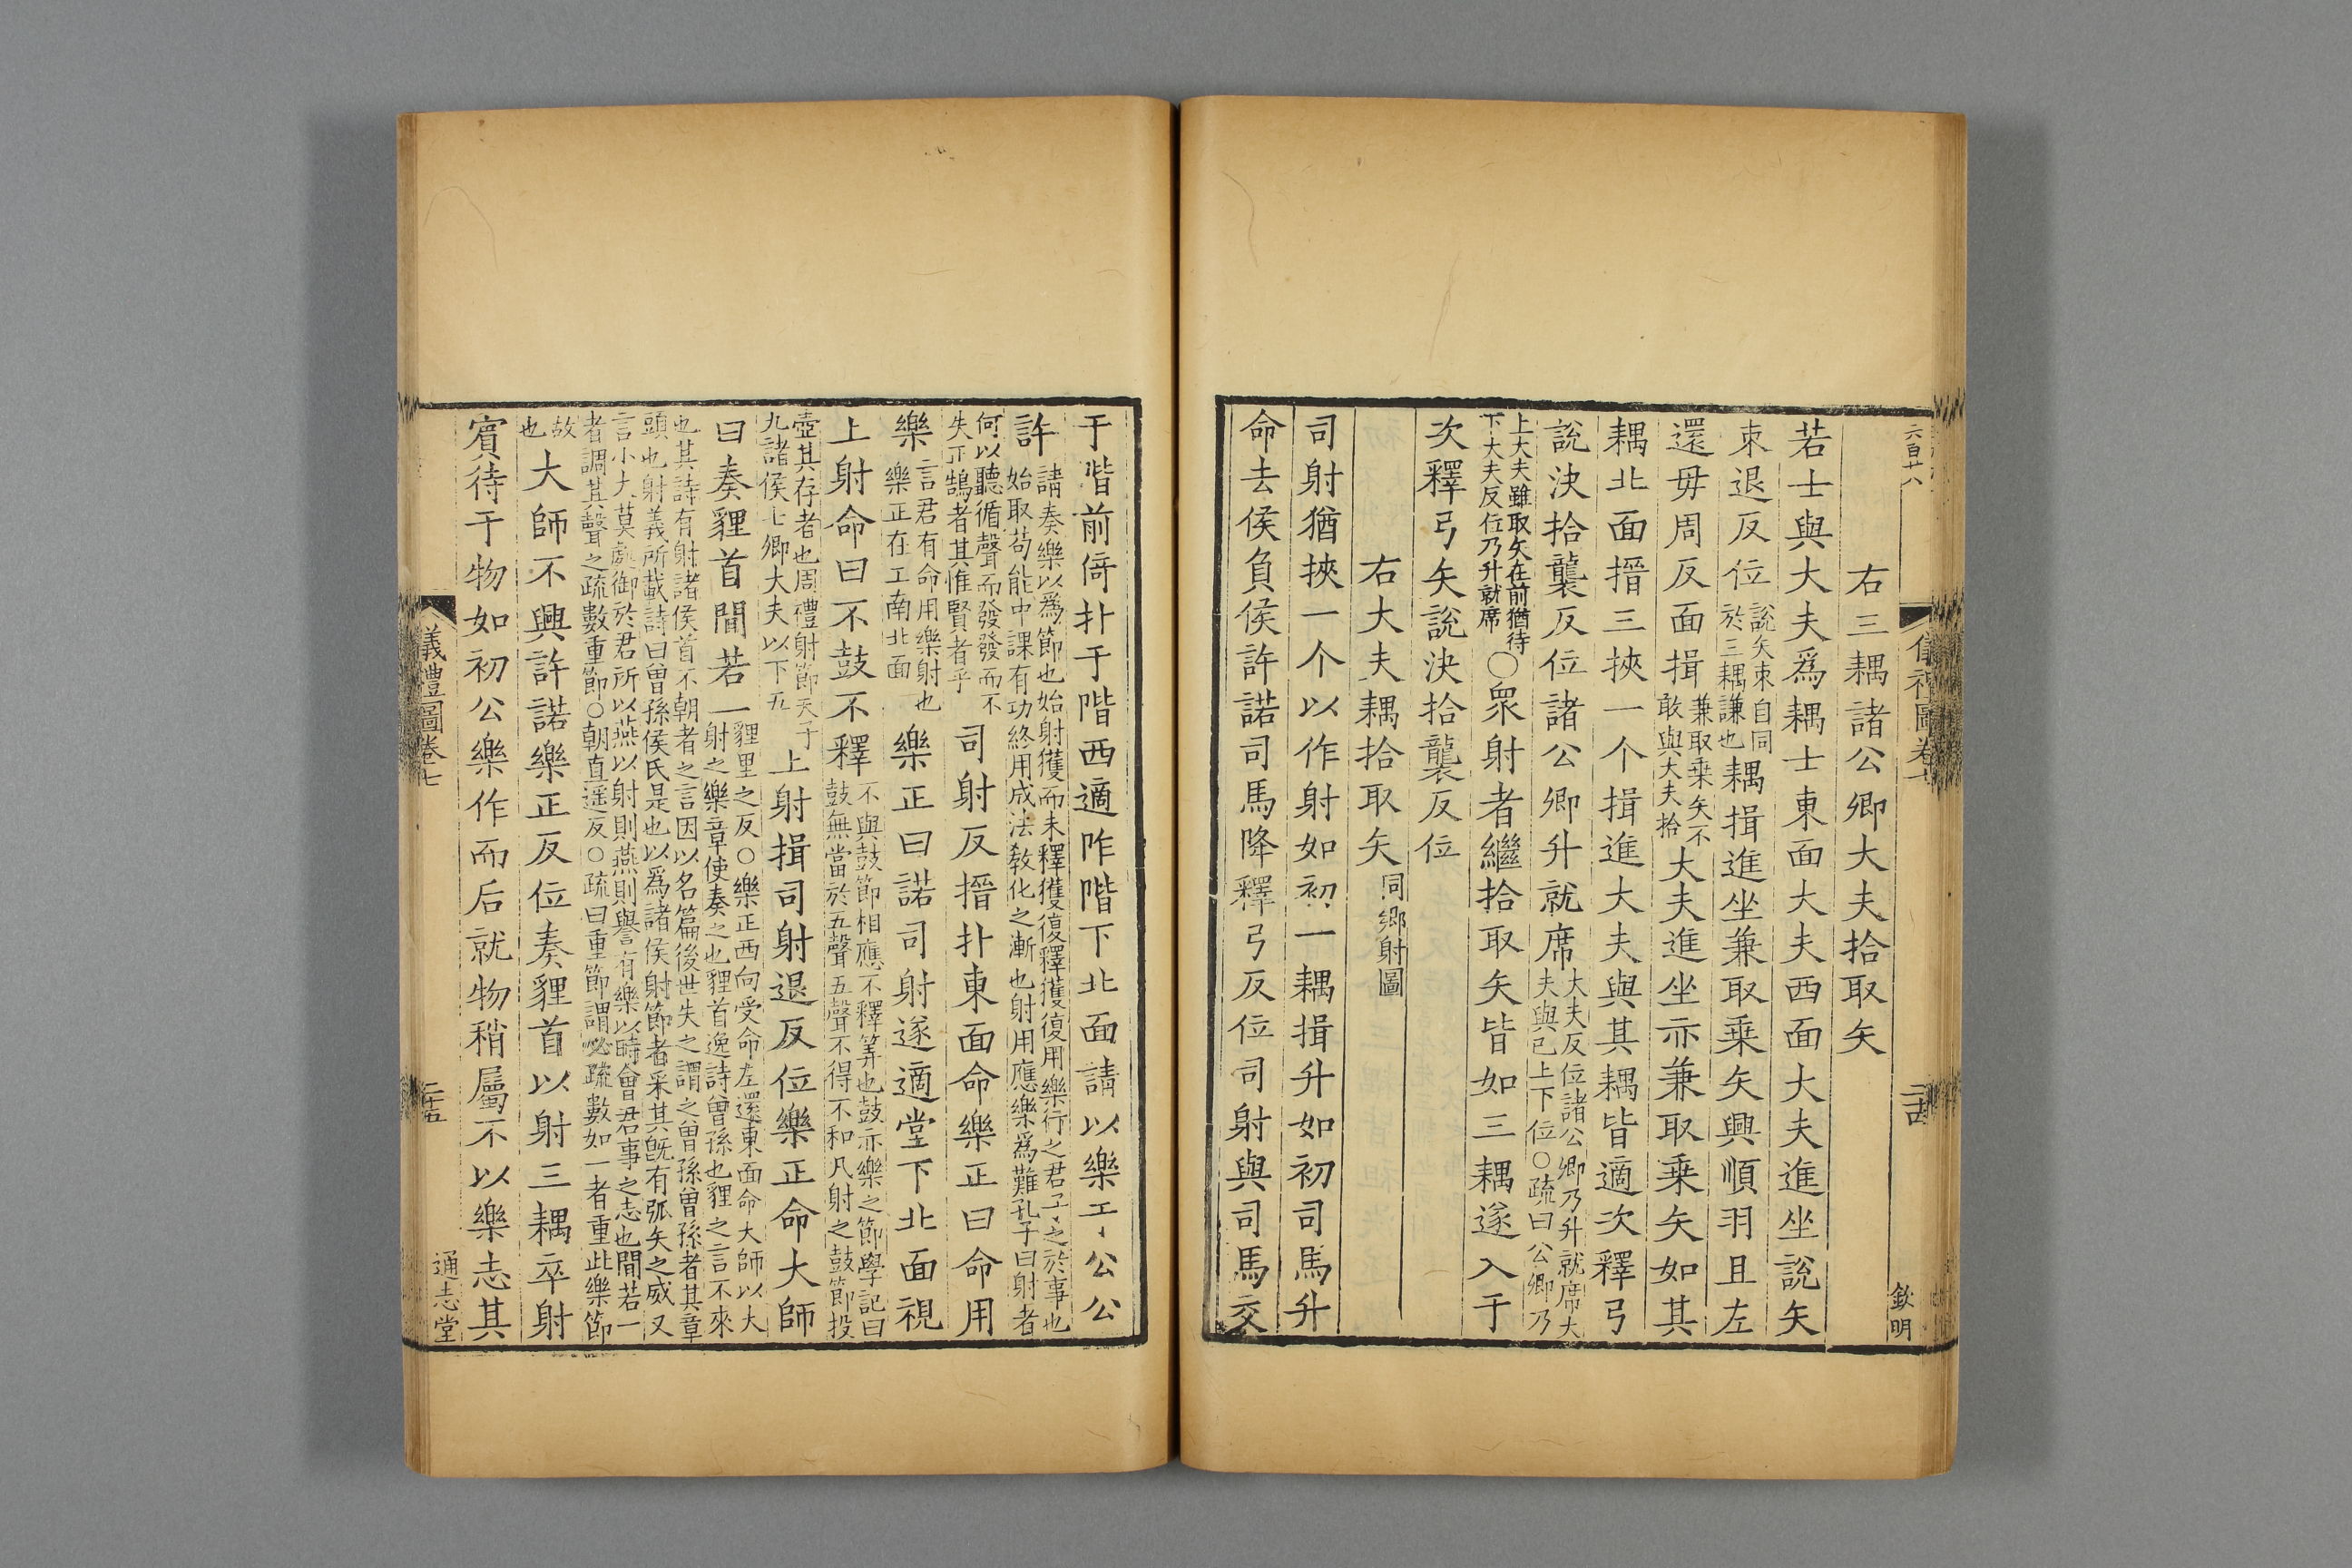 六百十八
儀禮圖卷七
欽明
右三耦諸公卿大夫拾取矢
若士與大夫爲耦士東面大夫西面大夫進坐說矢
束退反位說矢束自同於三耦謙也耦揖進坐兼取乗矢興順羽且左
還毋周反面揖兼取乗矢不敢與大夫拾大夫進坐亦兼取乗矢如其
耦北面搢三挾一个揖進大夫與其耦皆適次釋弓
說決拾襲反位諸公卿升就席大夫反位諸公卿乃升就席大夫與己上下位○疏曰公卿乃
上大夫雖取矢在前猶待下大夫反位乃升就席○衆射者繼拾取矢皆如三耦遂入于
次釋弓矢說決拾襲反位
右大夫耦拾取矢同鄉射圖
司射猶挾一个以作射如初一耦揖升如初司馬升
命去侯負侯許諾司馬降釋弓反位司射與司馬交
于階前倚扑于階西適阼階下北面請以樂于公公
許請奏樂以爲節也始射獲而未釋獲復釋獲復用樂行之君子之於事也始取苟能中課有功終用成法敎化之漸也射用應樂爲難孔子曰射者
何以聽循聲而發發而不失正鵠者其惟賢者乎司射反搢扑東面命樂正曰命用
樂言君有命用樂射也樂正在工南北面樂正曰諾司射遂適堂下北面視
上射命曰不鼓不釋不與鼓節相應不釋筭也鼓亦樂之節學記曰鼓無當於五聲五聲不得不和凡射之鼓節投
壺其存者也周禮射節天子九諸侯七卿大夫以下五上射揖司射退反位樂正命大師
曰奏貍首閒若一貍里之反○樂正西向受命左還東面命大師以大射之樂章使奏之也貍首逸詩曾孫也貍之言不來
也其詩有射諸侯首不朝者之言因以名篇後世失之謂之曾孫曾孫者其章頭也射義所載詩曰曾孫侯氏是也以爲諸侯射節者采其旣有弧矢之威又
言小大莫處御於君所以燕以射則燕則譽有樂以時會君事之志也閒若一者調其聲之疏數重節○朝直遥反○疏曰重節謂必疏數如一者重此樂節
故也大師不興許諾樂正反位奏貍首以射三耦卒射
賓待于物如初公樂作而后就物稍屬不以樂志其
儀禮圖卷七
通志堂